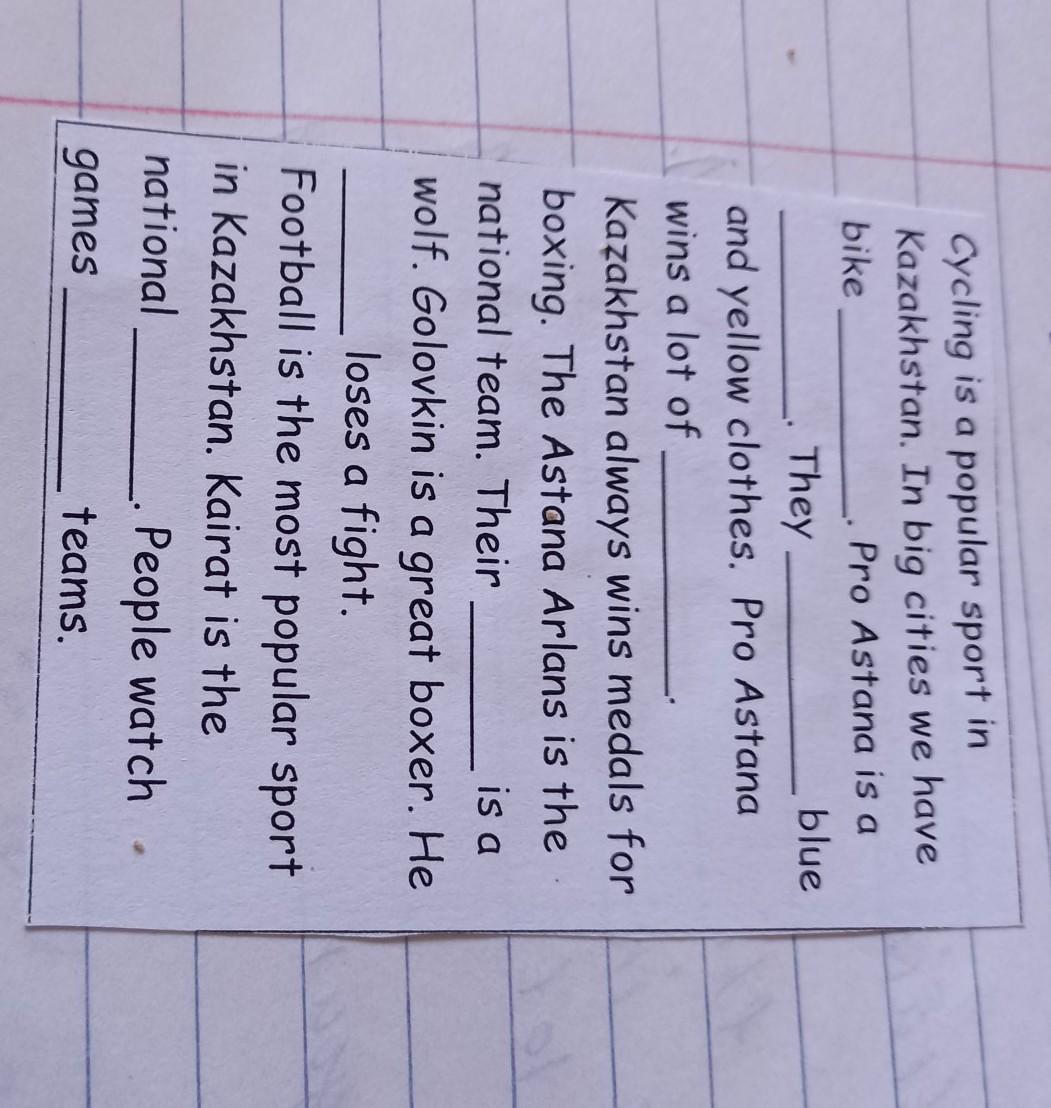 Cycling is a popular sport in
Kazakhstan. In big cities we have
bike __________. Pro Astana is a
__________. They ____________ blue
and yellow clothes. Pro Astana
wins a lot of ____________.
Kazakhstan always wins medals for
boxing. The Astana Arlans is the
national team. Their ________ is a
wolf. Golovkin is a great boxer. He
________ loses a fight.
Football is the most popular sport
in Kazakhstan. Kairat is the
national ________. People watch
games __________ teams.